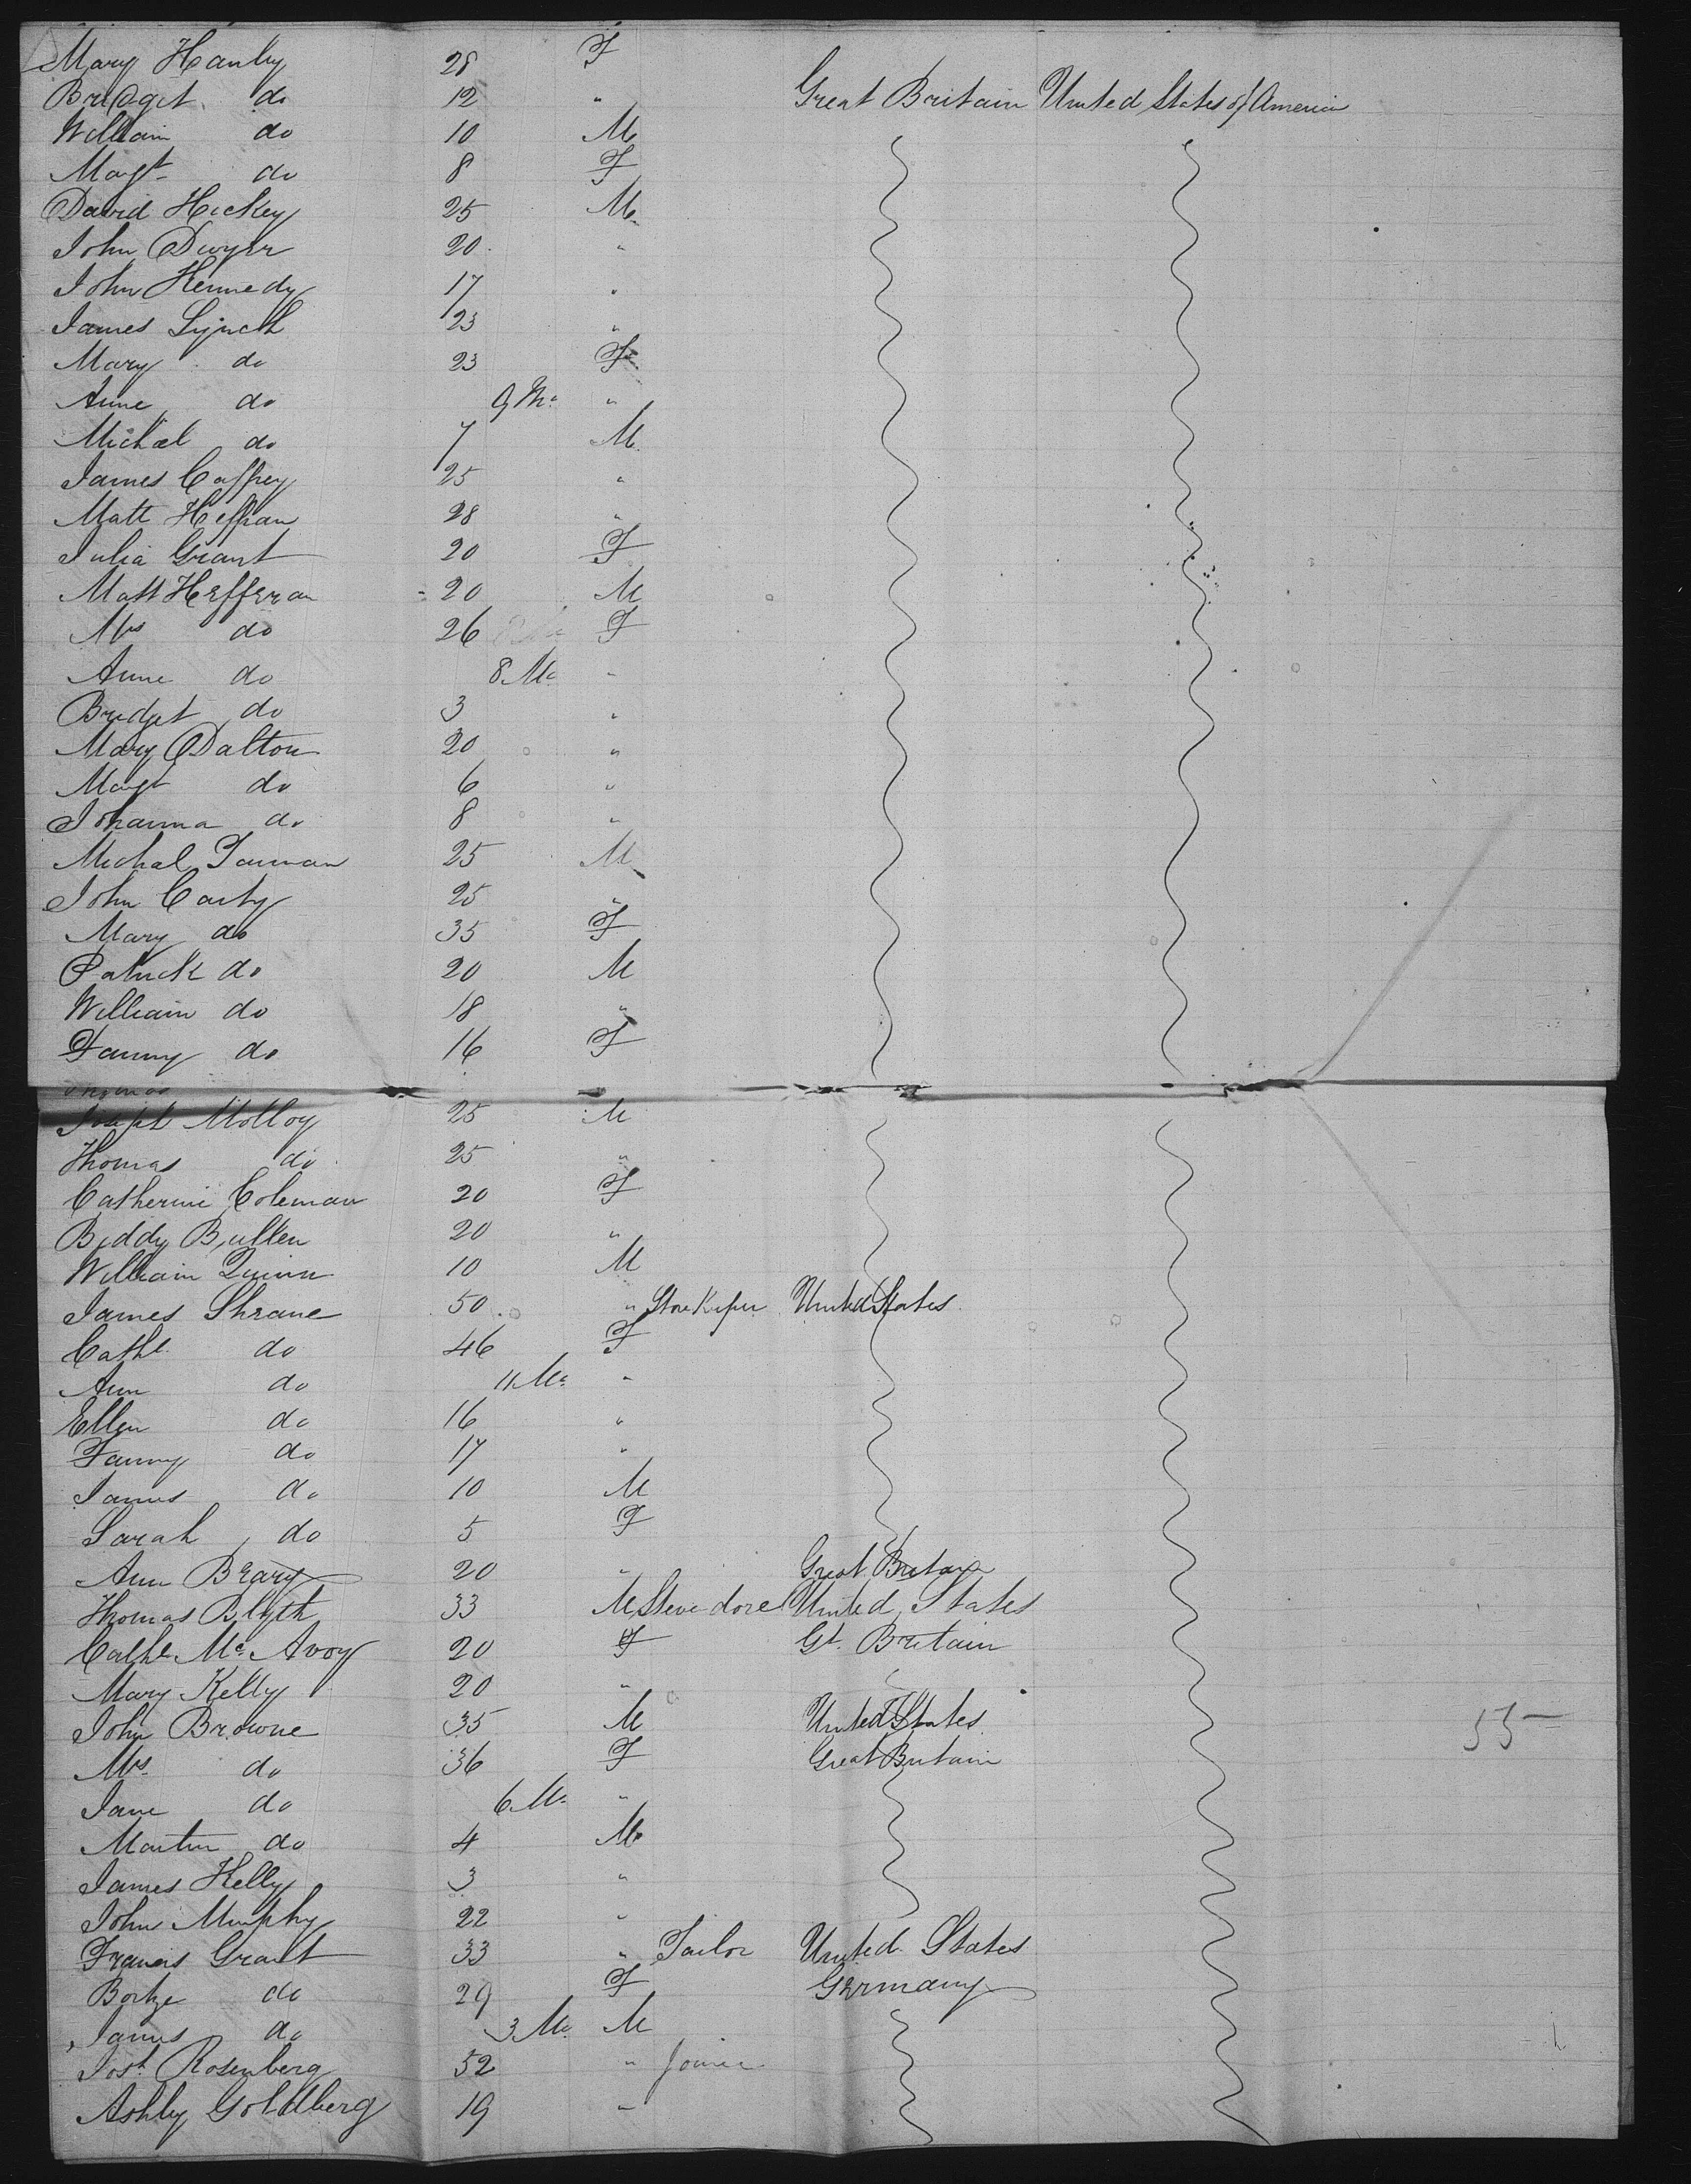 Mary Hanly 28 F
Bridget do 12 " Great Britain United States of America
William do 10 M
Magt do 8 F
David Hickey 25 M
John Dwyer 20 "
John Kennedy 17 "
James Lynch 23 "
Mary do 23 F
Anne do 9 Ms "
Michael do 7 M
James Caffrey 25 "
Matt Heffran 28 "
Julia Grant 20 F
Matt Hefferan 20 M
Mrs do 26 F
Anne do 8 Ms "
Bridget do 3 "
Mary Dalton 20 "
Magt do 6 "
Johanna do 8 "
Michal 25 M
John Carty 25 "
Mary do 35 F
Patrick do 20 M
William do 18 "
Fanny do 16 F
Thomas
Joseph Molloy 25 M
Thomas do 25 "
Catherine Coleman 20 F
Biddy Bullen 20 "
William Quinn 10 M
James Shrane 50 " Store Keeper United States
Cathe do 46 F
Ann do 11 Ms "
Ellen do 16 "
Fanny do 17 "
James do 10 M
Sarah do 5 F
Ann Beary 20 " Great Britain
Thomas Blyth 33 M Stevedore United States
Cathe Mc Avoy 20 F Gt. Britain
Mary Kelly 20 "
John Browne 35 M United States 55
Mrs do 36 F Great Britain
Jane do 6 Ms "
Martin do 4 M
James Kelly 3 "
John Murphy 22 "
Francis Grant 33 " Tailor United States
do 29 F Germany
James do 3 Ms M
Josh Rosenberg 52 " Joiner
Ashly Goldberg 19 "